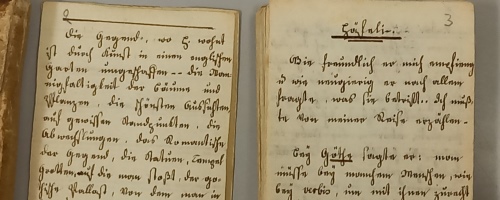 2
die Gegend, wo H. wohnt
ist durch Kunst in einen englischen
Garten umgeschaffen -- die Man
nigfaltigkeit der Bäume und
Pflanzen, die schönsten Aussichten
auf gewissen Standpunkten, die
Abwechslungen, das Romantische
der Gegend, die Statuen, Tempel
Grotten, auf die man stößt, der go-
thische Pallast, von dem man in
3
Häfeli
Wie freundlich er mich empfieng
u wie neugierig er nach allem
fragte, was Sie betrift.. Ich muß-
te von meiner Reise erzählen.
Bey Göthe sagte er: man
müsse bey manchem Menschen, wie
bey um mit ihnen zurecht